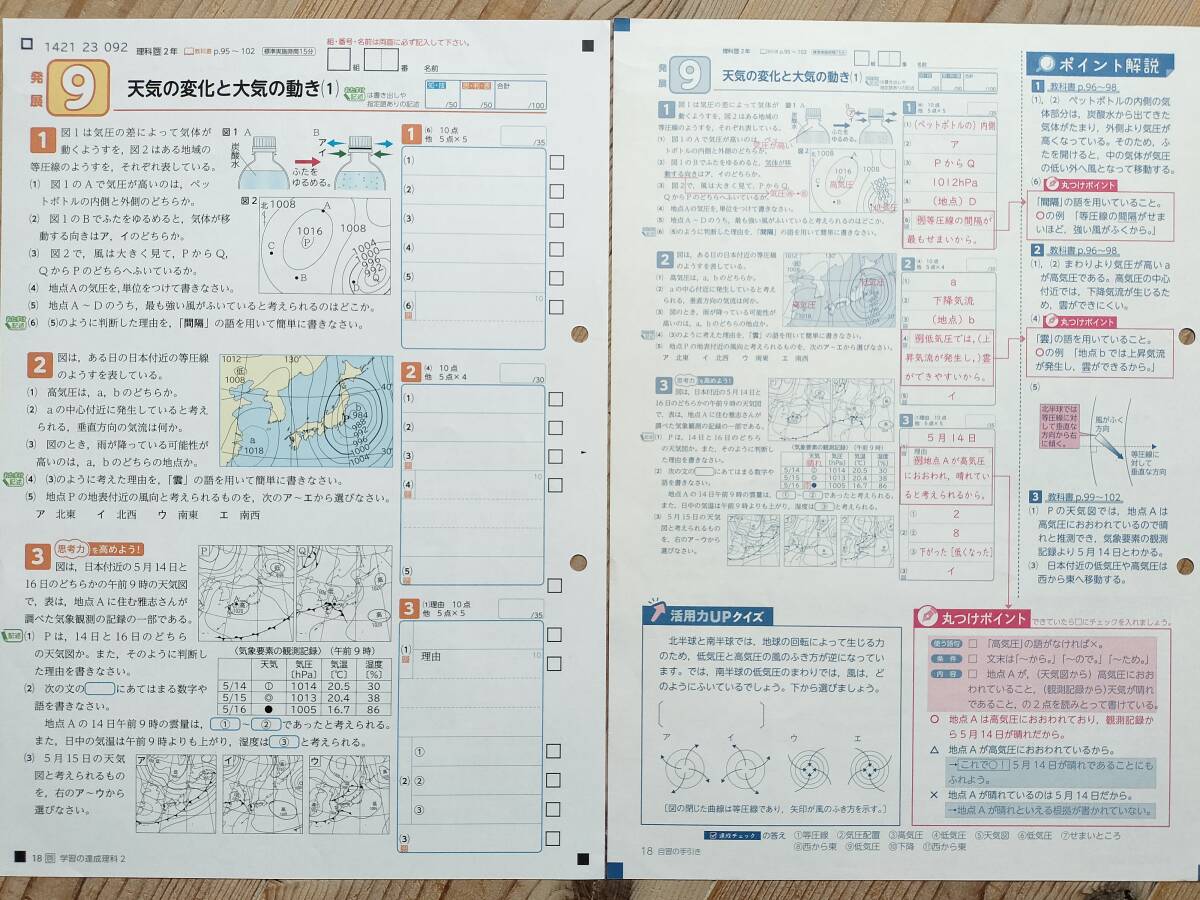 1421 23 092
理科 2年
教科書 p.95～102
標準実施時間15分
組・番号・名前は両面に必ず記入して下さい。
組
番
名前
発展
9
天気の変化と大気の動き(1)
は書き出しや
指定語ありの記述
/50
/50
合計
/100
1
図1は気圧の差によって気体が
動くようすを，図2はある地域の
等圧線のようすを，それぞれ表している。
(1) 図1のAで気圧が高いのは，ペッ
トボトルの内側と外側のどちらか。
(2) 図1のBでふたをゆるめると，気体が移
動する向きはア，イのどちらか。
(3) 図2で，風は大きく見て，PからQ，
QからPのどちらへふいているか。
(4) 地点Aの気圧を，単位をつけて書きなさい。
(5) 地点A～Dのうち，最も強い風がふいていると考えられるのはどこか。
(6) (5)のように判断した理由を，「間隔」の語を用いて簡単に書きなさい。
図1
A
B
炭酸水
ア
イ
ふたを
ゆるめる。
図2
北
1008
A
1016
P
1008
C
B
1004
1000
996
992
2
図は，ある日の日本付近の等圧線
のようすを表している。
(1) 高気圧は，a，bのどちらか。
(2) aの中心付近に発生していると考え
られる，垂直方向の気流は何か。
(3) 図のとき，雨が降っている可能性が
高いのは，a，bのどちらの地点か。
(4) (3)のように考えた理由を，「雲」の語を用いて簡単に書きなさい。
(5) 地点Pの地表付近の風向と考えられるものを，次のア～エから選びなさい。
ア 北東 イ 北西 ウ 南東 エ 南西
1012
130°
低
1008
40°
b
984
988
992
996
1000
1004
30°
a
1018
3
思考力を高めよう！
図は，日本付近の5月14日と
16日のどちらかの午前9時の天気図
で，表は，地点Aに住む雅志さんが
調べた気象観測の記録の一部である。
(1) Pは，14日と16日のどちら
の天気図か。また，そのように判断し
た理由を書きなさい。
(2) 次の文の にあてはまる数字や
語を書きなさい。
地点Aの14日午前9時の雲量は，①～②であったと考えられる。
また，日中の気温は午前9時よりも上がり，湿度は③と考えられる。
(3) 5月15日の天気
図と考えられるもの
を，右のア～ウから
選びなさい。
P
Q
〈気象要素の観測記録〉（午前9時）
天気 気圧[hPa] 気温[℃] 湿度[%]
5/14 1014 20.5 30
5/15 ◎ 1013 20.4 38
5/16 ● 1005 16.7 86
ア
イ
ウ
1
(6) 10点
他 5点×5
/35
(1)
(2)
(3)
(4)
(5)
(6)
10
2
(4) 10点
他 5点×4
/30
(1)
(2)
(3)
(4)
(5)
3
(1)理由 10点
他 5点×5
/35
(1)
理由
10
①
(2) ②
③
(3)
18 学習の達成理科2
理科 2年
p.95～102
発展
9
天気の変化と大気の動き(1)
1
(ペットボトルの) 内側
ア
PからQ
1012hPa
(地点) D
例等圧線の間隔が
最もせまいから。
気圧が高い
高気圧
低気圧
2
a
下降気流
(地点) b
例低気圧では，(上
昇気流が発生し，)雲
ができやすいから。
イ
3
5月14日
理由
例地点Aが高気圧
におおわれ，晴れてい
ると考えられるから。
① 2
② 8
③ 下がった [低くなった]
イ
晴れ
ポイント解説
1 教科書 p.96～98
(1)，(2) ペットボトルの内側の気
体部分は，炭酸水から出てきた
気体がたまり，外側より気圧が
高くなっている。そのため，ふ
たを開けると，中の気体が気圧
の低い外へ風となって移動する。
(6) 丸つけポイント
「間隔」の語を用いていること。
○の例 「等圧線の間隔がせま
いほど，強い風がふくから。」
2 教科書 p.96～98
(1)，(2) まわりより気圧が高いa
が高気圧である。高気圧の中心
付近では，下降気流が生じるた
め，雲ができにくい。
(4) 丸つけポイント
「雲」の語を用いていること。
○の例 「地点bでは上昇気流
が発生し，雲ができるから。」
(5)
北半球では
等圧線に対
して垂直な
方向から右
に傾く。
風がふく
方向
等圧線に
対して
垂直な方向
3 教科書 p.99～102
(1) Pの天気図では，地点Aは
高気圧におおわれているので晴
れと推測でき，気象要素の観測
記録より5月14日とわかる。
(3) 日本付近の低気圧や高気圧は
西から東へ移動する。
活用力UPクイズ
北半球と南半球では，地球の回転によって生じる力
のため，低気圧と高気圧の風のふき方が逆になってい
ます。では，南半球の低気圧のまわりでは，風は，ど
のようにふいているでしょう。下から選びましょう。
ア イ ウ エ
〔図の閉じた曲線は等圧線であり，矢印が風のふき方を示す。〕
丸つけポイント
できていたら□にチェックを入れましょう。
使う語句 □ 「高気圧」の語がなければ×。
条件 □ 文末は「～から。」「～ので。」「～ため。」
内容 □ 地点Aが，(天気図から) 高気圧におお
われていること，(観測記録から)天気が晴れ
であること，の2点を読みとって書けている。
○ 地点Aは高気圧におおわれており，観測記録か
ら5月14日が晴れだから。
△ 地点Aが高気圧におおわれているから。
→これで○！ 5月14日が晴れであることにも
ふれよう。
× 地点Aが晴れているのは5月14日だから。
→地点Aが晴れといえる根拠が書かれていない。
達成チェック の答え ①等圧線 ②気圧配置 ③高気圧 ④低気圧 ⑤天気図 ⑥低気圧 ⑦せまいところ
⑧西から東 ⑨低気圧 ⑩下降 ⑪西から東
18 自習の手引き